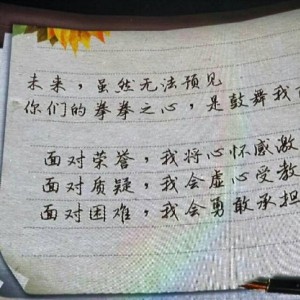 未来，虽然无法预见
你们的拳拳之心，是鼓舞我
面对荣誉，我将心怀感激
面对质疑，我会虚心受教
面对困难，我会勇敢承担